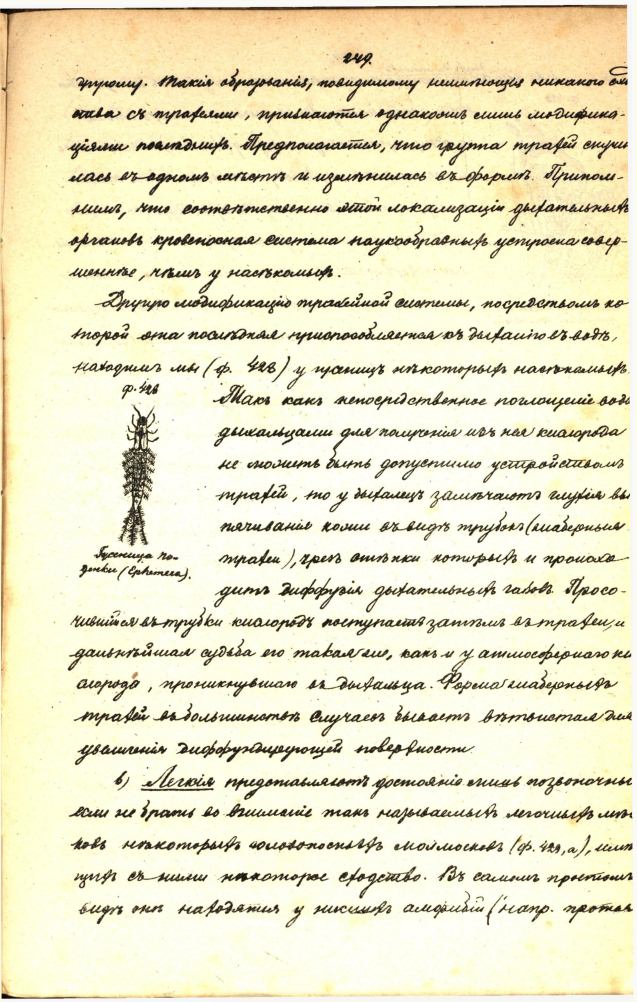 249.
другому. Такія образованія, повидимому неимѣющія никакого
ства съ трахеями, признаются однакожъ лишь модифика-
ціями послѣднихъ. Предполагается, что группа трахей скучи
лась въ одномъ мѣстѣ и измѣнилась въ формѣ. Припом-
нимъ, что соотвѣтственно этой локализаціи дыхательныхъ
органовъ кровеносная система паукообразныхъ устроена совер-
шеннѣе, чѣмъ у насѣкомыхъ.
Другую модификацію трахейной системы, посредствомъ ко
торой эта послѣдняя приспособляется къ дыханію въ водѣ,
находимъ мы (ф. 428) у гусеницъ нѣкоторыхъ насѣкомыхъ.
ф. 428
Такъ какъ непосредственное поглощеніе воды
дыхальцами для полученія изъ нея кислорода
не можетъ быть допустимо устройствомъ
трахей, то у дыхалецъ замѣчаютъ глухія вы
пячиванія кожи въ видѣ трубокъ (жаберныя
трахеи), чрезъ стѣнки которыхъ и происхо
дитъ диффузія дыхательныхъ газовъ. Просо-
Гусеница по-
денки (Ephemera).
чившійся въ трубки кислородъ поступаетъ затѣмъ въ трахеи, и
дальнѣйшая судьба его такая же, какъ и у атмосфернаго ки
слорода, проникнувшаго въ дыхальца. Форма жаберныхъ
трахей въ большинствѣ случаевъ бываетъ вѣтвистая для
увеличенія диффундирующей поверхности.
в) Легкія представляютъ достояніе лишь позвоночны
если не брать во вниманіе такъ называемыхъ легочныхъ мѣш
ковъ нѣкоторыхъ головоногихъ моллюсковъ (ф. 429, а), имѣю
щихъ съ ними нѣкоторое сходство. Въ самомъ простомъ
видѣ онѣ находятся у низшихъ амфибій (напр. протея